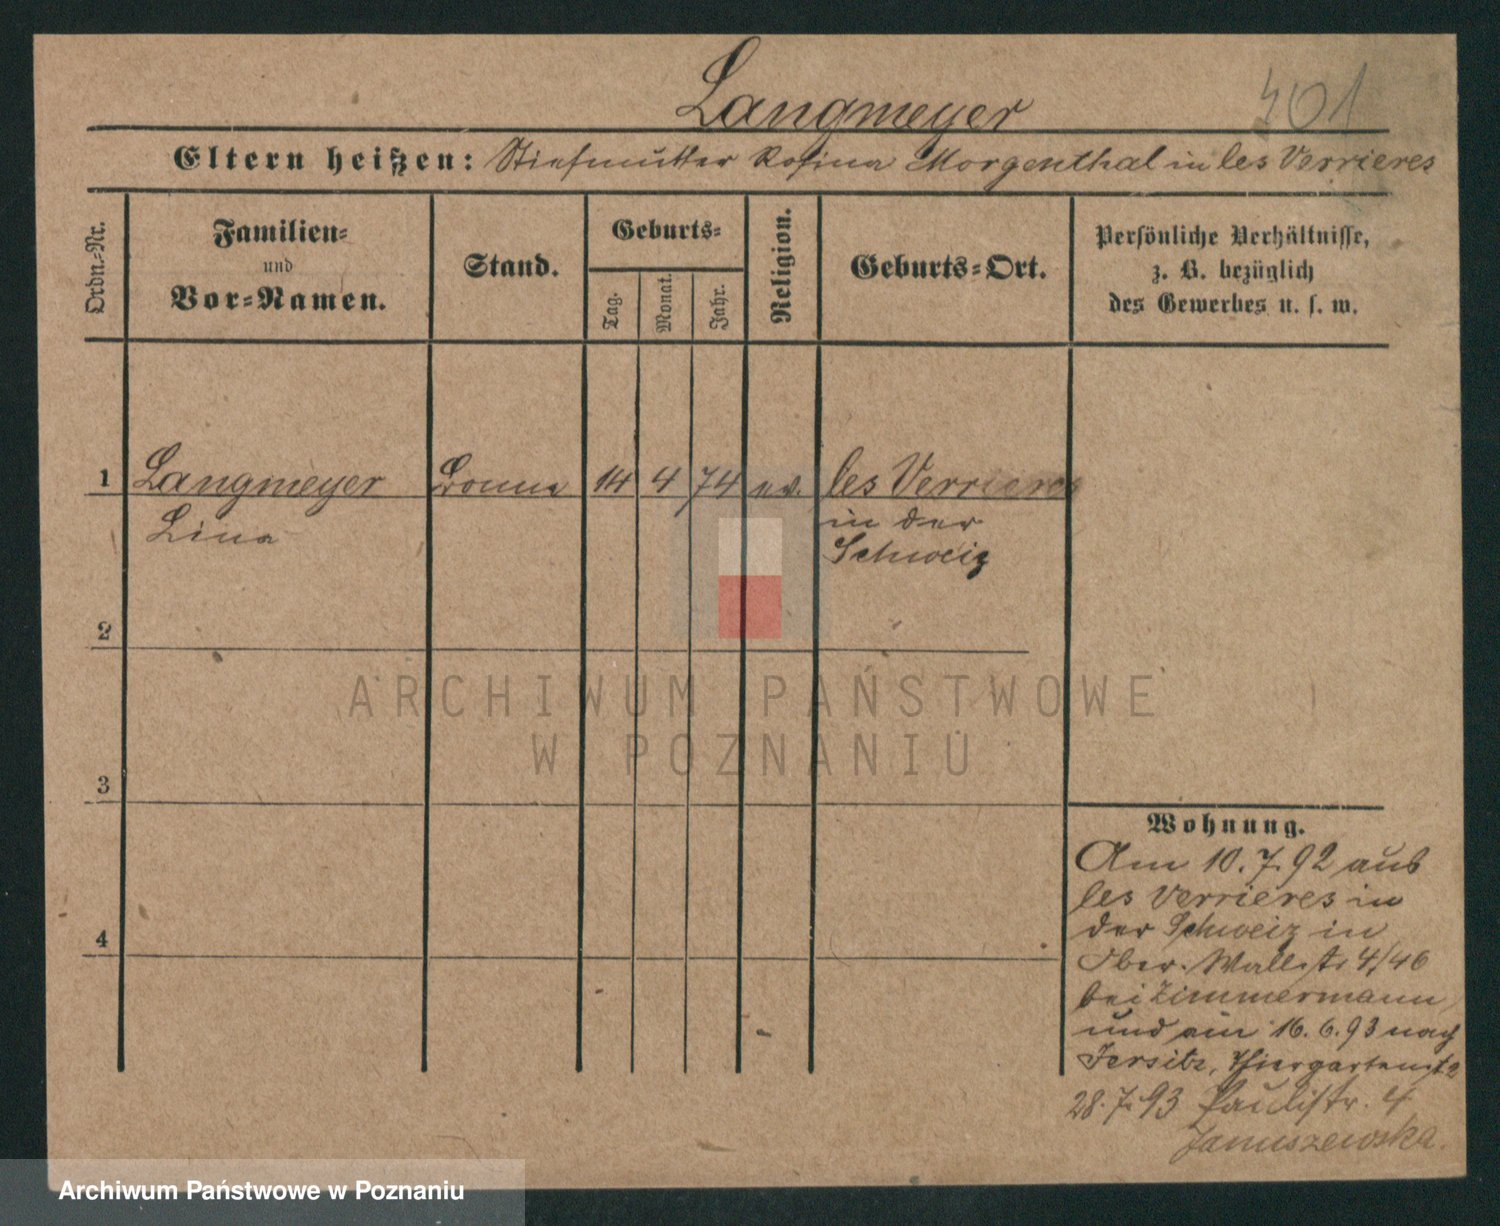 Langmeyer
701
Eltern heißen: Stiefmutter Rosina Morgenthal in les Verrieres
Ordn.-Nr.
Familien-
und
Vor-Namen.
Stand.
Geburts-
Tag.
Monat.
Jahr.
Religion.
Geburts-Ort.
Persönliche Verhältnisse,
z. B. bezüglich
des Gewerbes u. s. w.
1 Langmeyer Bonne 14 4 74 ev. les Verrieres
Lina in der
Schweiz
2
3
4
ARCHIWUM PAŃSTWOWE
W POZNANIU
Wohnung.
Am 10.7.92 aus
les Verrieres in
der Schweiz in
Ober-Wallstr 4/46
bei Zimmermann
und am 16.6.93 nach
Jersitz, Thiergartenstr 2
28.7.93 Paulistr. 4
Januszewska.
Archiwum Państwowe w Poznaniu